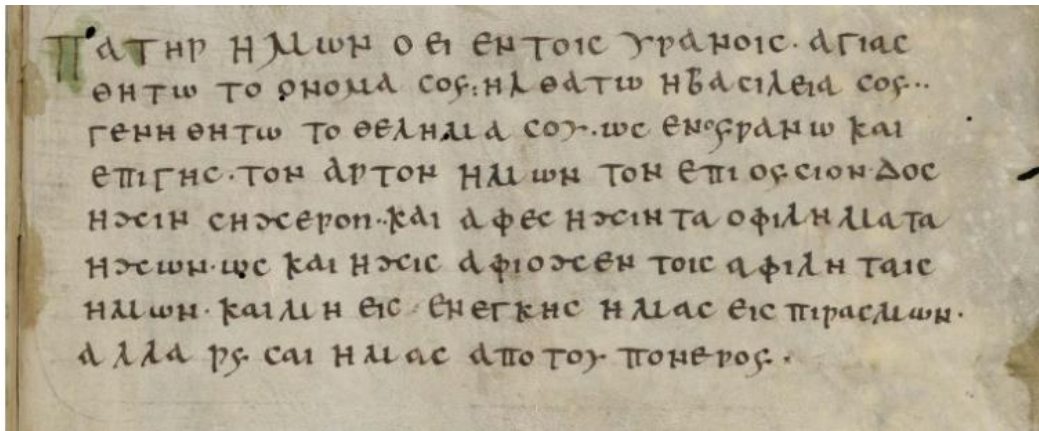 ΠΑΤΗΡ ΗΜΩΝ Ο ΕΙ ΕΝ ΤΟΙϹ ΥΡΑΝΟΙϹ · ΑΓΙΑϹ
ΘΗΤΩ ΤΟ ΟΝΟΜΑ ϹΟΥ : ΗΛΘΑΤΩ Η ΒΑϹΙΛΕΙΑ ϹΟΥ ··
ΓΕΝΗΘΗΤΩ ΤΟ ΘΕΛΗΜΑ ϹΟΥ · ΩϹ ΕΝ ΟΥΡΑΝΩ ΚΑΙ
ΕΠΙ ΓΗϹ · ΤΟΝ ΑΡΤΟΝ ΗΜΩΝ ΤΟΝ ΕΠΙΟΥϹΙΟΝ · ΔΟϹ
ΗΜΙΝ ϹΗΜΕΡΟΝ ·· ΚΑΙ ΑΦΕϹ ΗΜΙΝ ΤΑ ΟΦΙΛΗΜΑΤΑ
ΗΜΩΝ · ΩϹ ΚΑΙ ΗΜΙϹ ΑΦΙΟΜΕΝ ΤΟΙϹ ΑΦΙΛΗΤΑΙϹ
ΗΜΩΝ · ΚΑΙ ΜΗ ΕΙϹ ΕΝΕΓΚΗϹ ΗΜΑϹ ΕΙϹ ΠΙΡΑϹΜΩΝ ·
ΑΛΛΑ ΡΥϹΑΙ ΗΜΑϹ ΑΠΟ ΤΟΥ ΠΟΝΕΡΟΥ ·